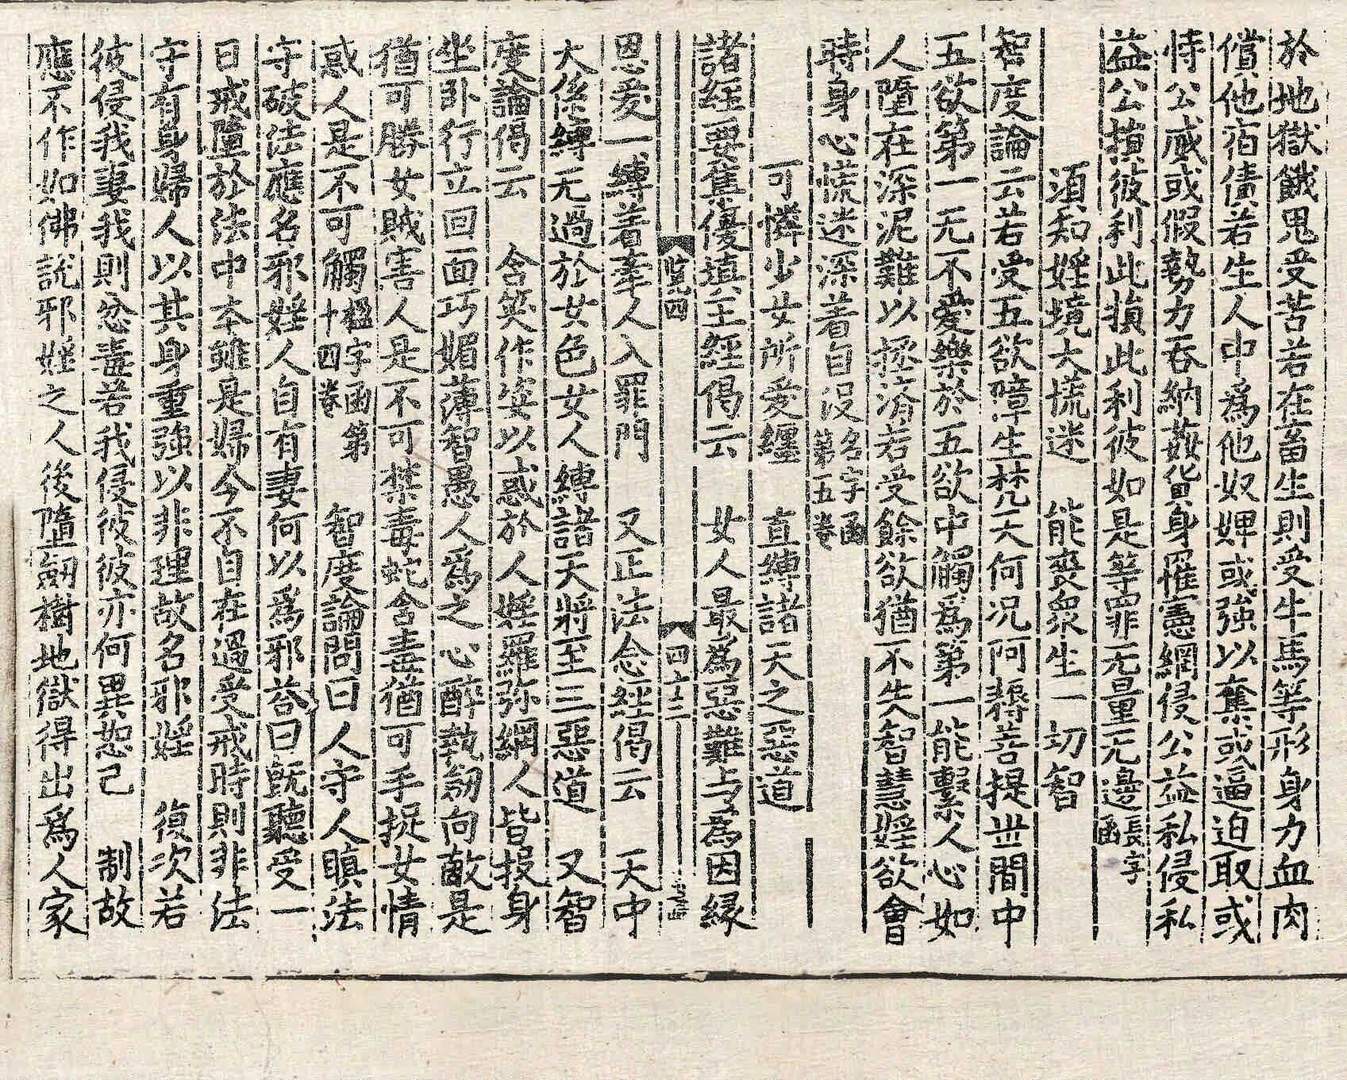 於地獄餓鬼受苦若在畜生則受牛馬等形身力血肉
償他宿債若生人中爲他奴婢或強以奪或逼迫取或
恃公威或假勢力吞納姦貨身罹憲網侵公益私侵私
益公損彼利此損此利彼如是等罪无量无邊長字函
須知婬境大慌迷 能喪衆生一切智
智度論云若受五欲障生梵天何况阿耨菩提世間中
五欲第一无不愛樂於五欲中觸爲第一能繫人心如
人墮在深泥難以拯濟若受餘欲猶不失智慧婬欲會
時身心慌迷深着自没名字函第五卷
可憐少女所愛纏 直縛諸天之惡道
諸經要集優填王經偈云 女人最爲惡難与爲因縁
覽四 四十二
恩爱一縛着牽人入罪門 又正法念経偈云 天中
大係縛无過於女色女人縛諸天將至三惡道 又智
度論偈云 含笑作姿以惑於人婬羅弥網人皆投身
坐卧行立回面巧媚薄智愚人爲之心醉執劒向敵是
猶可勝女賊害人是不可禁毒蛇含毒猶可手捉女情
惑人是不可觸楹字函第十四卷 智度論問曰人守人瞋法
守破法應名邪婬人自有妻何以爲邪荅曰旣聽受一
日戒墮於法中本雖是婦今不自在過受戒時則非法
守有身婦人以其身重強以非理故名邪婬 復次若
彼侵我妻我則忿毒若我侵彼彼亦何異恕己 制故
應不作如佛說邪婬之人後墮劒樹地獄得出爲人家